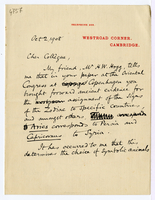 TELEPHONE 810
WESTROAD CORNER,
CAMBRIDGE.
Oct 2. 1908
Cher Collègue,
My friend, Mr. H. W. Hogg, tells
me that in your paper at the Oriental
Congress at Copenhagen you
brought forward ancient evidence for
the assignment of the Signs
of the Zodiac to specific countries,
and amongst other,
Aries corresponds to Persia and
Capricornus to Syria.
It has occurred to me that this
determines the choice of symbolic animals